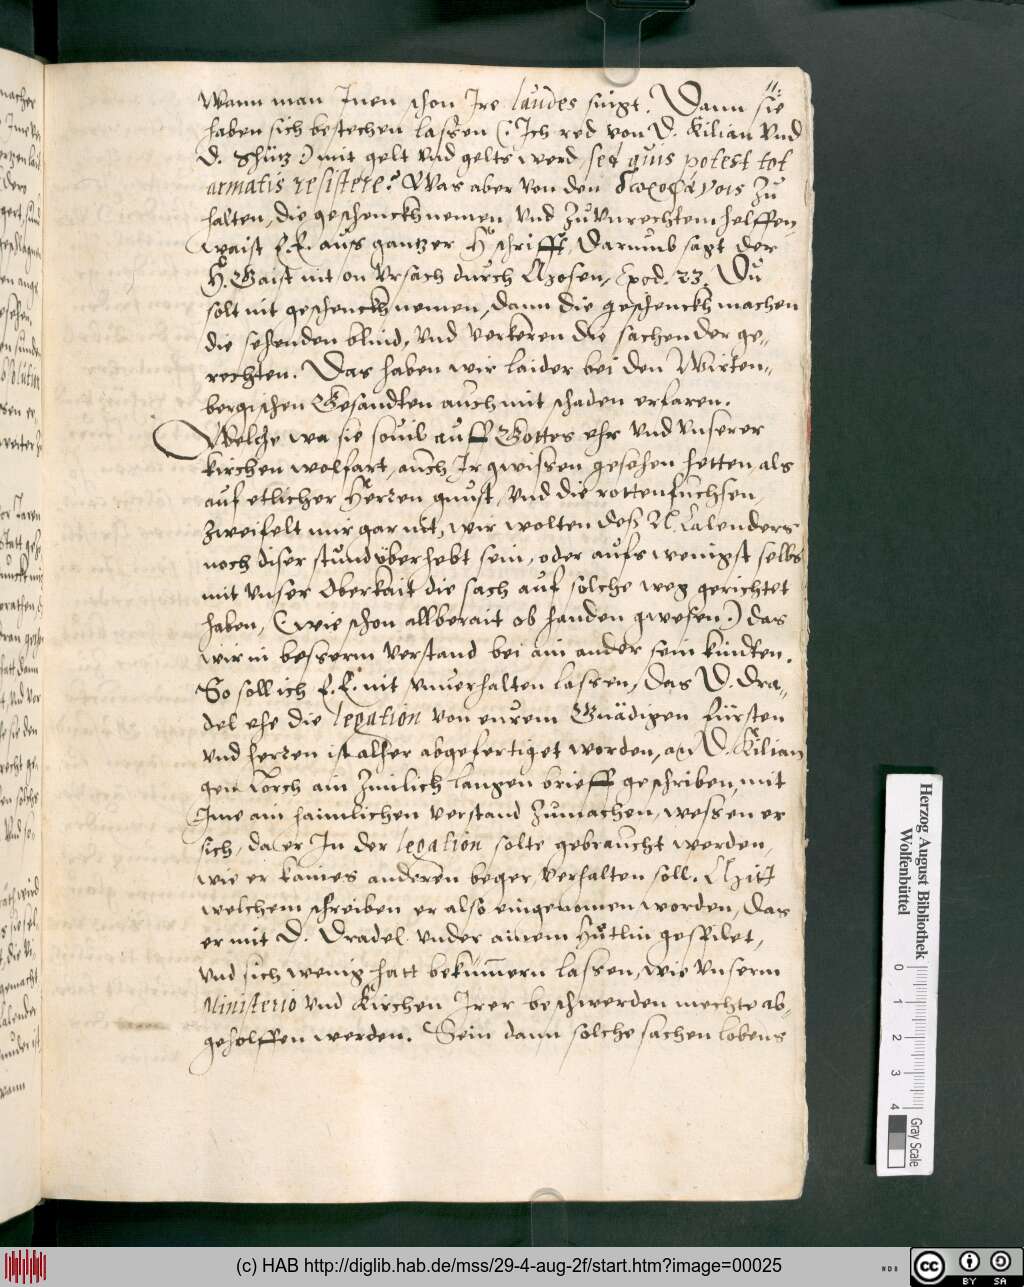 11.
Wann man Inen schon Ire laudes singt. Dann sie
haben sich bestechen lassen (: Ich red von D. Kilian vnd
D. Schütz :) mit gelt vnd gelts werd sed quis potest tot
armatis resistere? Was aber von den δωροφάγοις zu
halten, die geschenckh nemen vnd zu vnrechtem helffen,
waist E. E. aus gantzer H. schrifft, Darumb sagt der
H. Gaist nit on vrsach durch Mosen, Exod. 23. Du
solt nit geschenckh nemen, dann die geschenckh machen
die sehenden blind, vnd verkeren die sachen der ge-
rechten. Das haben wir laider bei den Wirten-
bergischen Gesandten auch mit schaden erfaren.
Welche wa sie souil auff Gottes ehr vnd vnserer
kirchen wolfart, auch Ir gwissen gesehen hetten, als
auf etlicher Herren gunst, vnd die rottenfuchsen,
zweifelt mir gar nit, wir wolten deß N. Calenders
noch diser stund überhebt sein, oder aufs wenigst selbs
mit vnser Oberkait die sach auf solche weg gerichtet
haben, (wie schon allberait ob handen gwesen :) das
wir in besserm verstand bei ain ander sein kindten.
So soll ich E. E. nit vnuerhalten lassen, das D. Dra-
del ehe die legation von eurem Gnädigen fürsten
vnd herren ist alher abgefertiget worden, an D. Kilian
gen Lorch ain zimlich langen brieff geschriben, mit
Ime ain haimlichen verstand zumachen, wessen er
sich, da er In der legation solte gebraucht werden,
wie er kaines anderen beger, verhalten soll. Mitt
welchem schreiben er also eingenomen worden, das
er mit D. Dradel vnder ainem Hütlin gespilet,
vnd sich wenig hatt bekümmern lassen, wie vnserm
Ministerio vnd Kirchen Irer beschwerden mechte ab-
geholffen werden. Sein dann solche sachen lobens
Herzog August Bibliothek
Wolfenbüttel
0 1 2 3 4
Gray Scale
(c) HAB http://diglib.hab.de/mss/29-4-aug-2f/start.htm?image=00025
cc BY SA